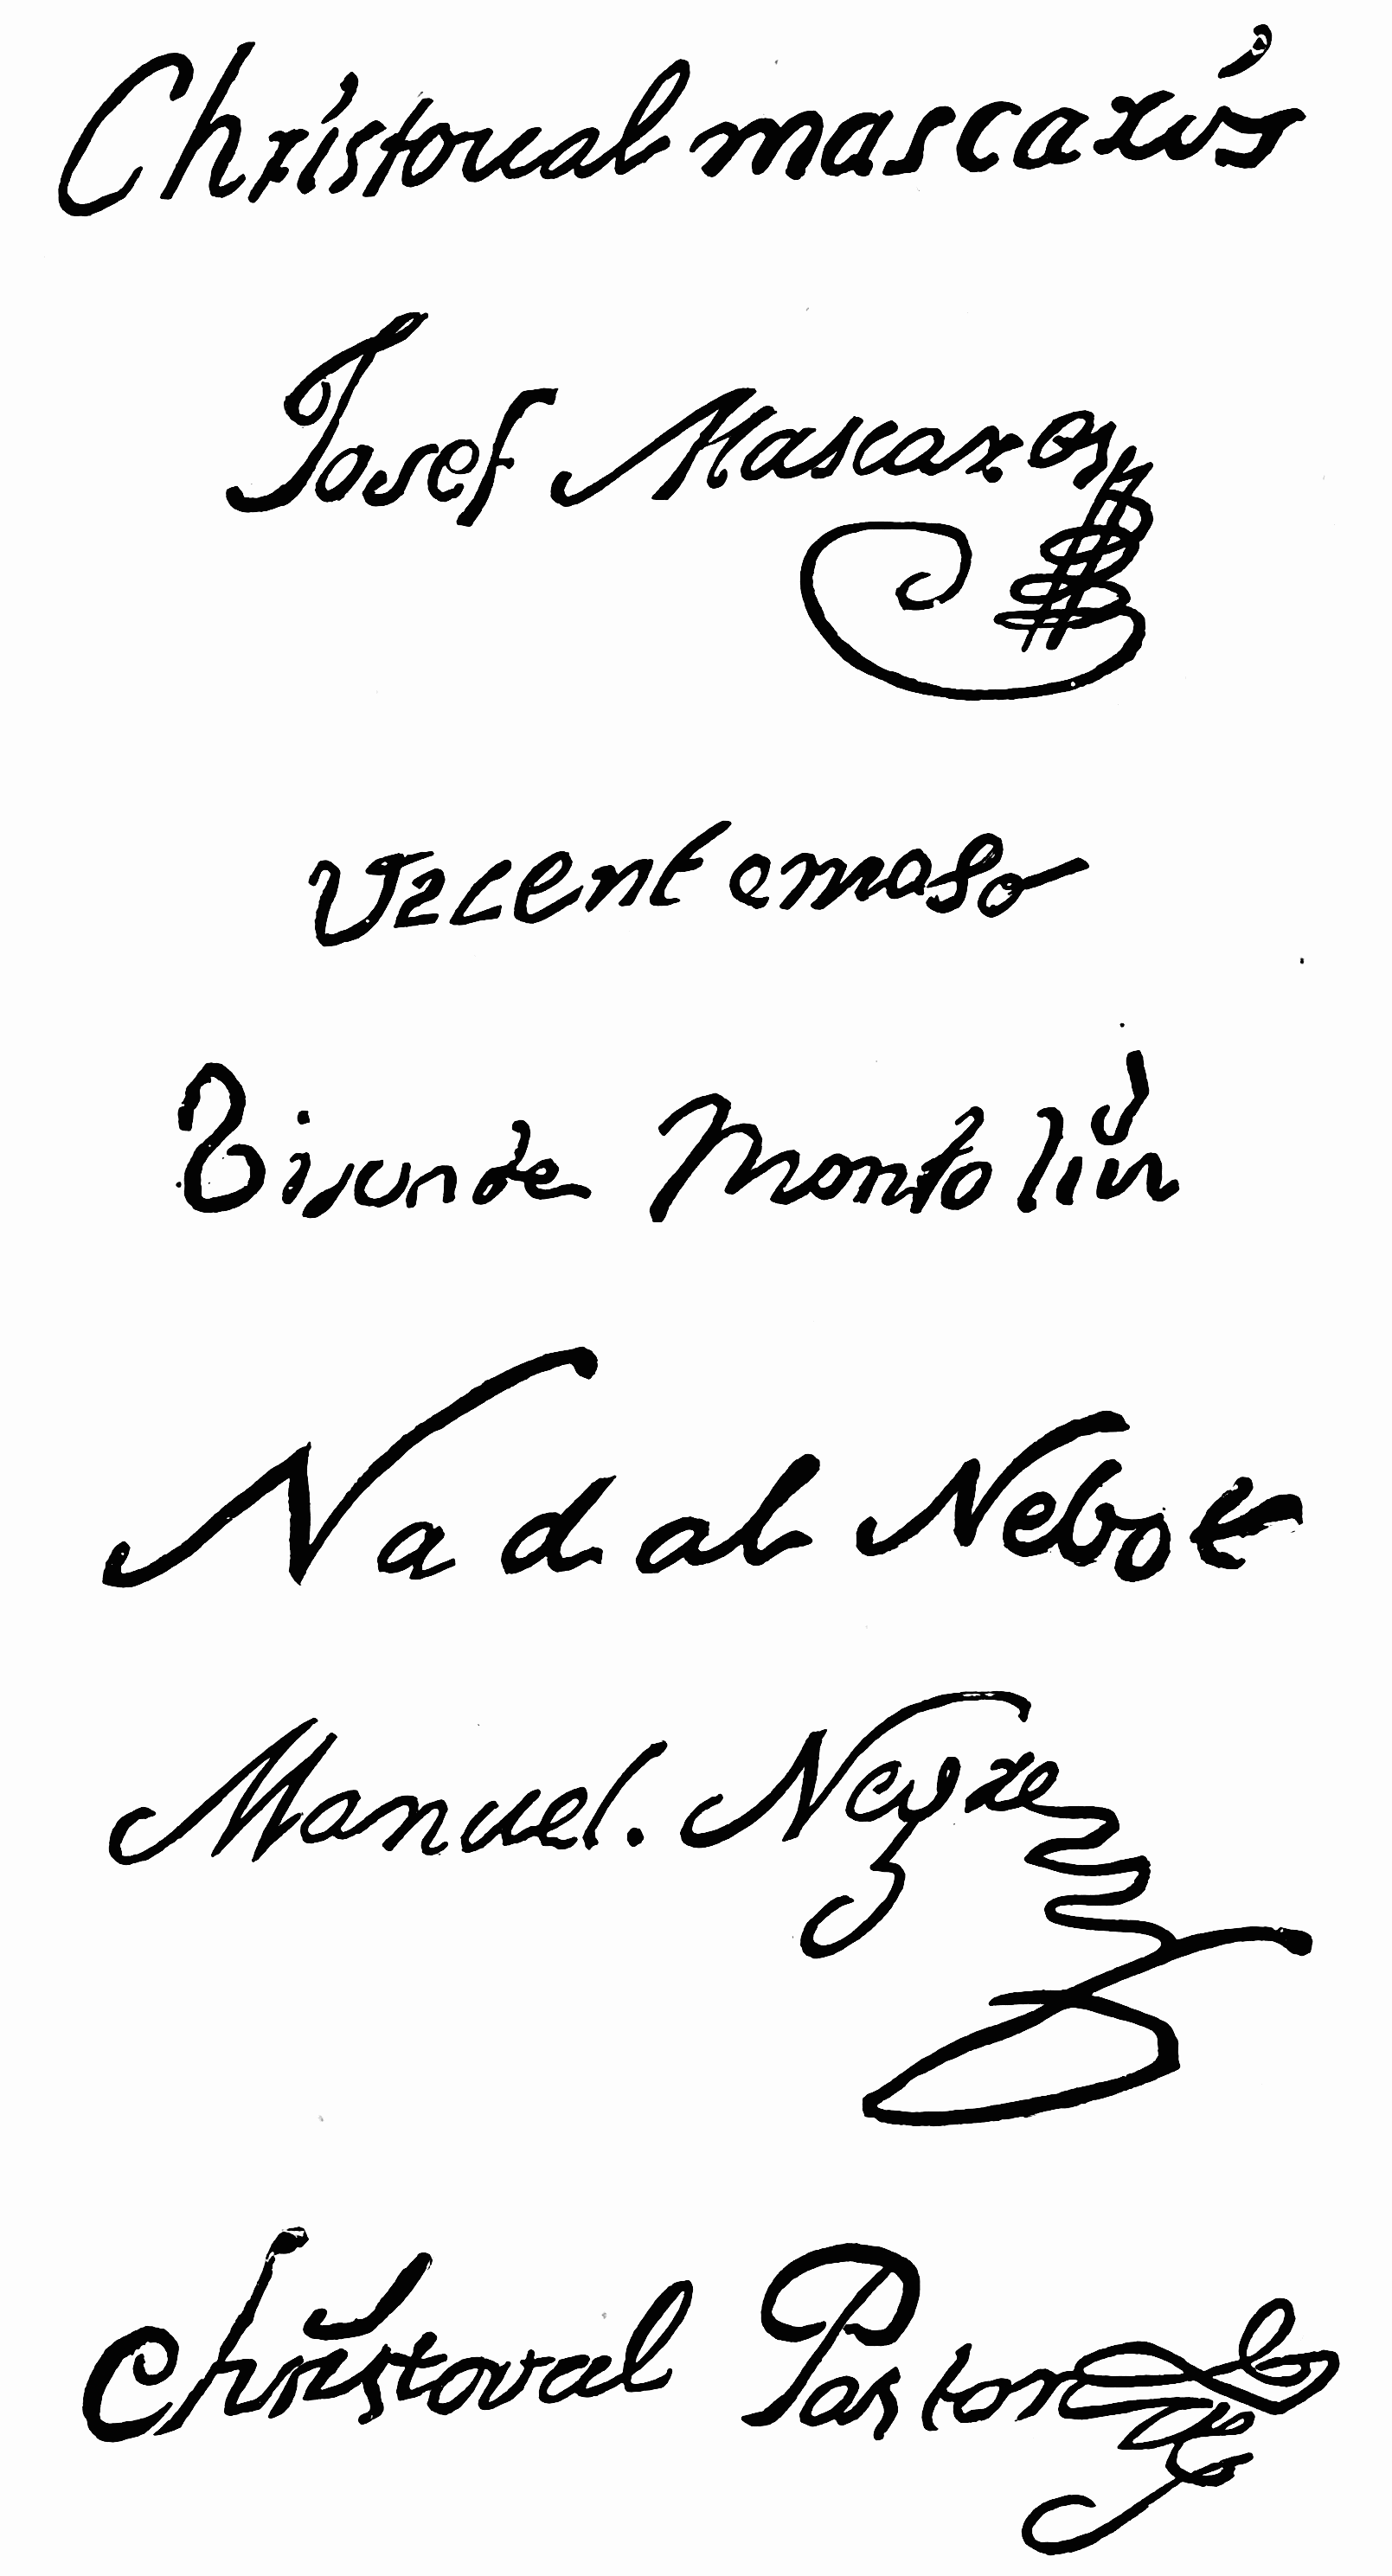 Christoual mascarós
Josef Mascaros
Vicent e maso
Bisunde Montoliu
Nadal Nebot
Manuel. Neyre
Christoval Pastor